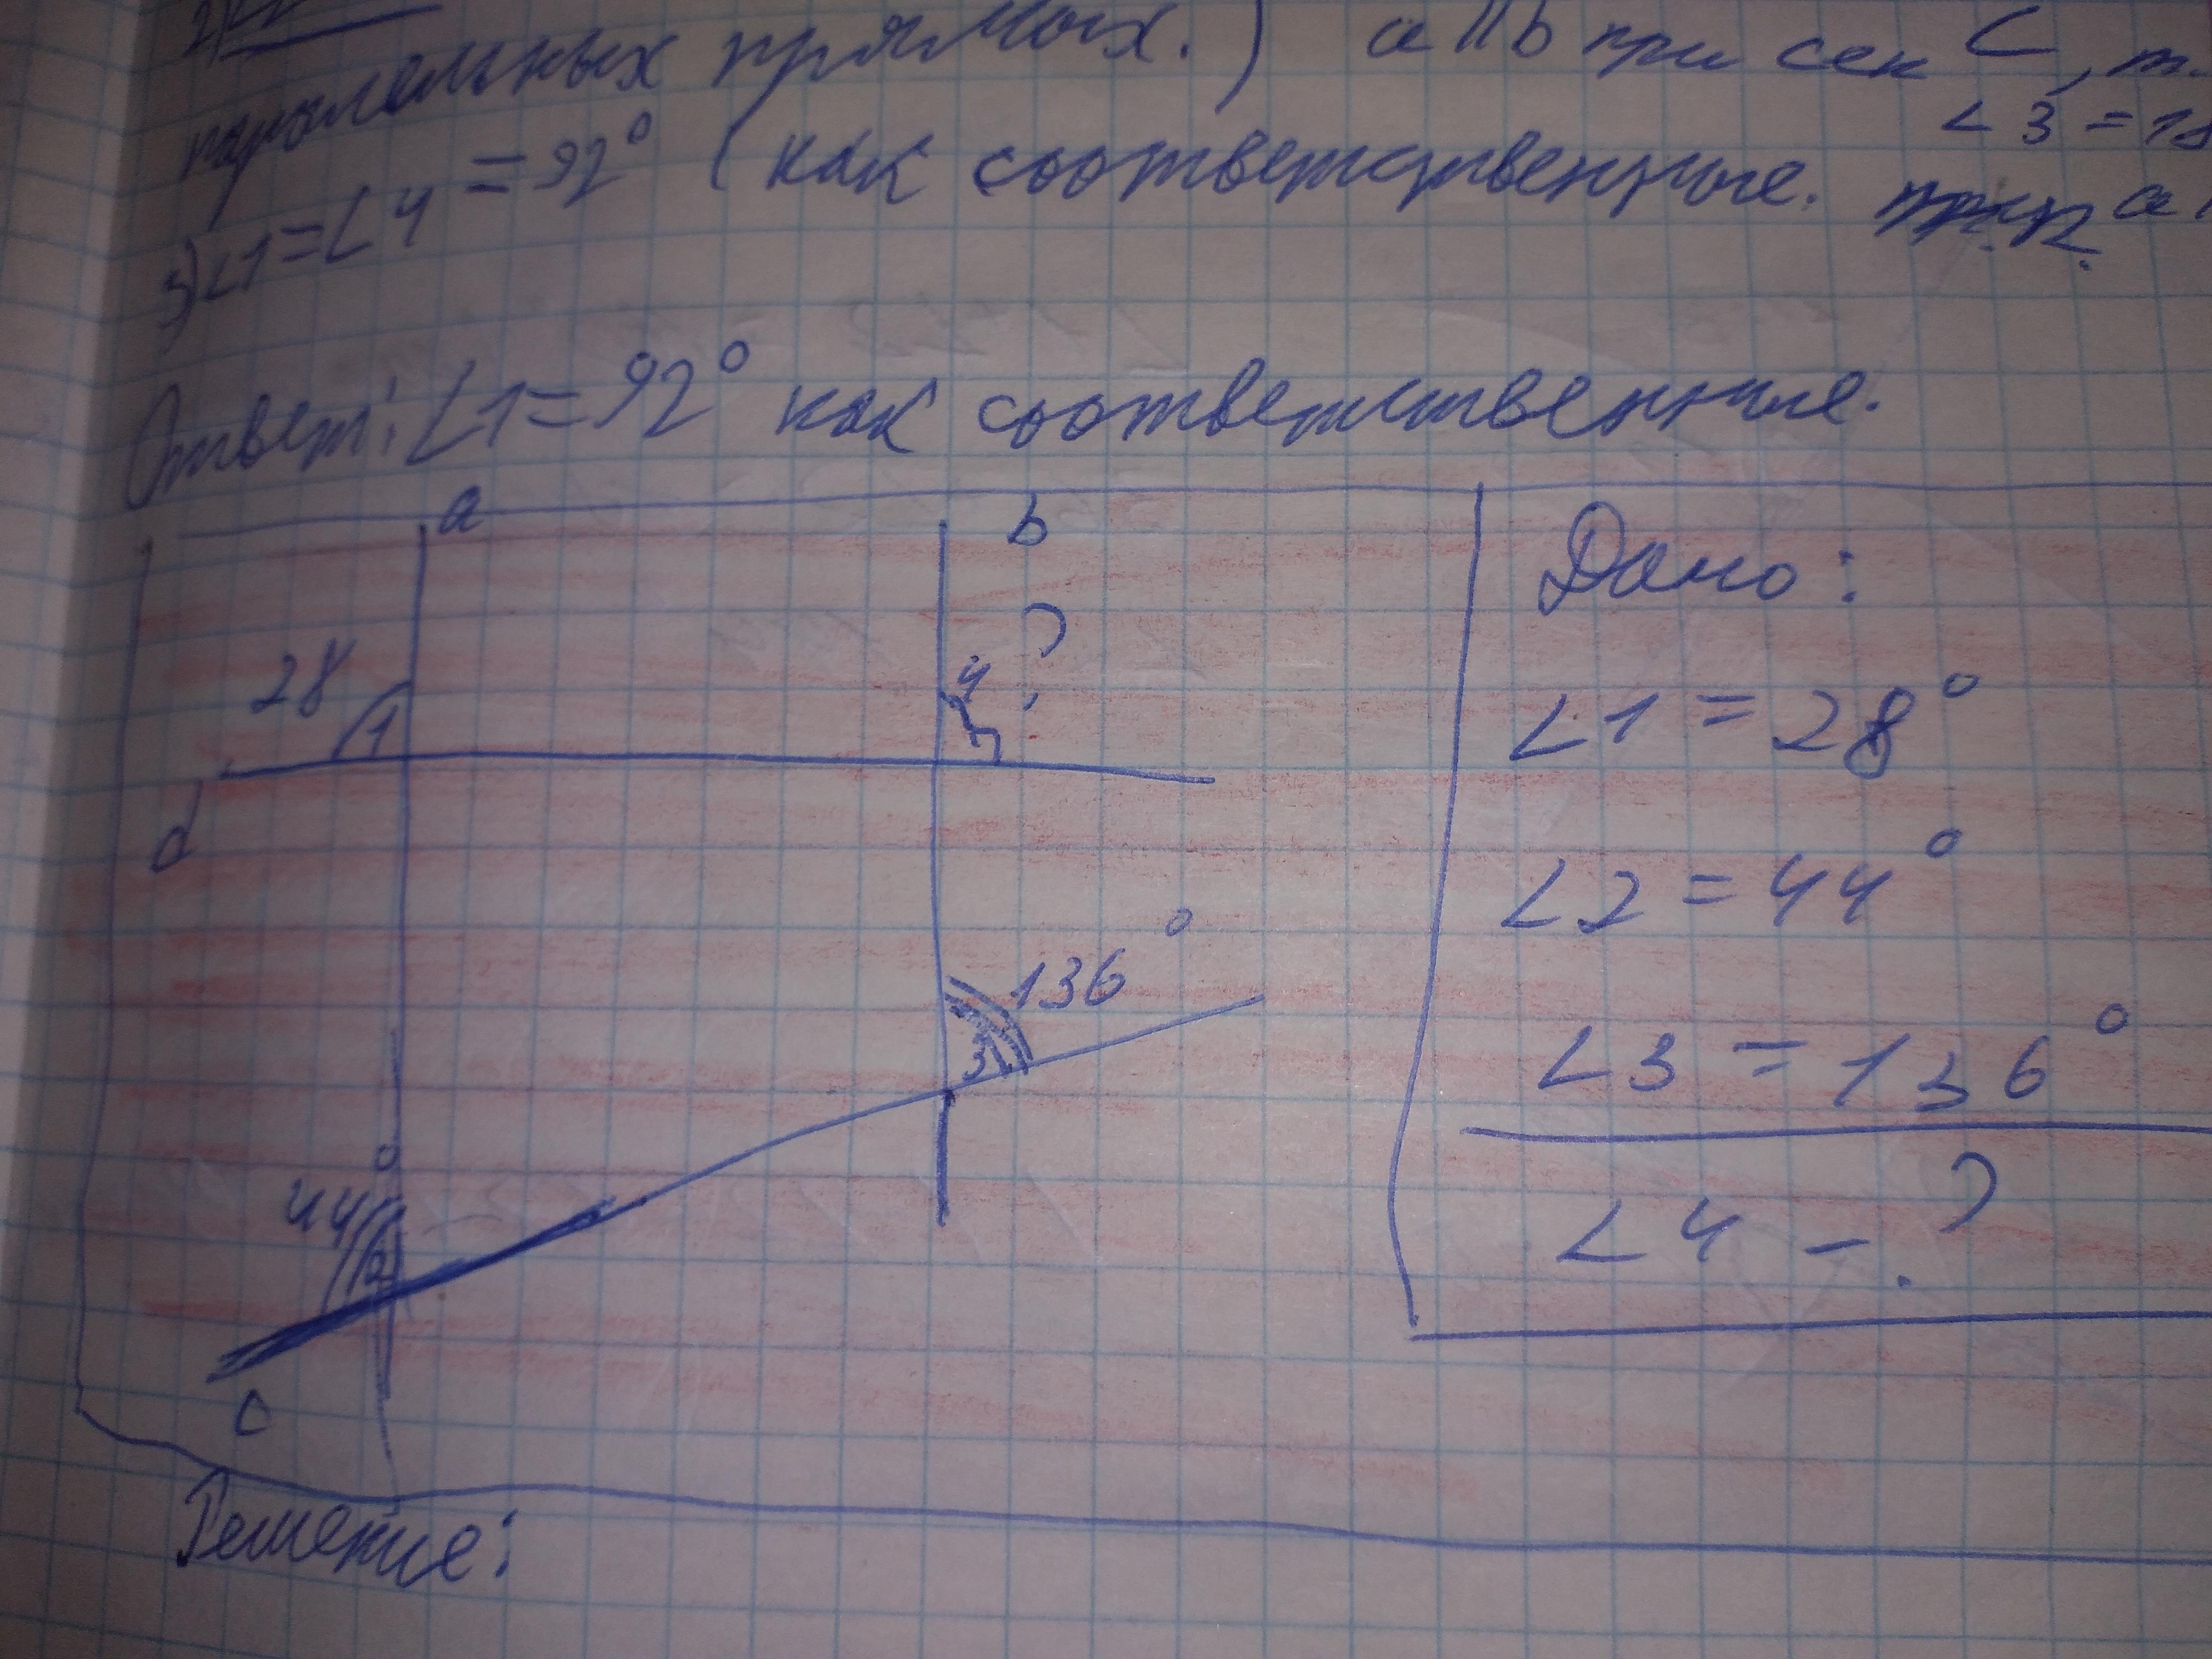 2)
паралельных прямых.) a || b при сек C, т.
∠3 = 18
3) ∠1 = ∠4 = 92° (как соответственные. a
Ответ: ∠1 = 92° как соответственные.
a
b
28
1
4
?
d
136°
3
44°
2
c
Дано:
∠1 = 28°
∠2 = 44°
∠3 = 136°
∠4 - ?
Решение: